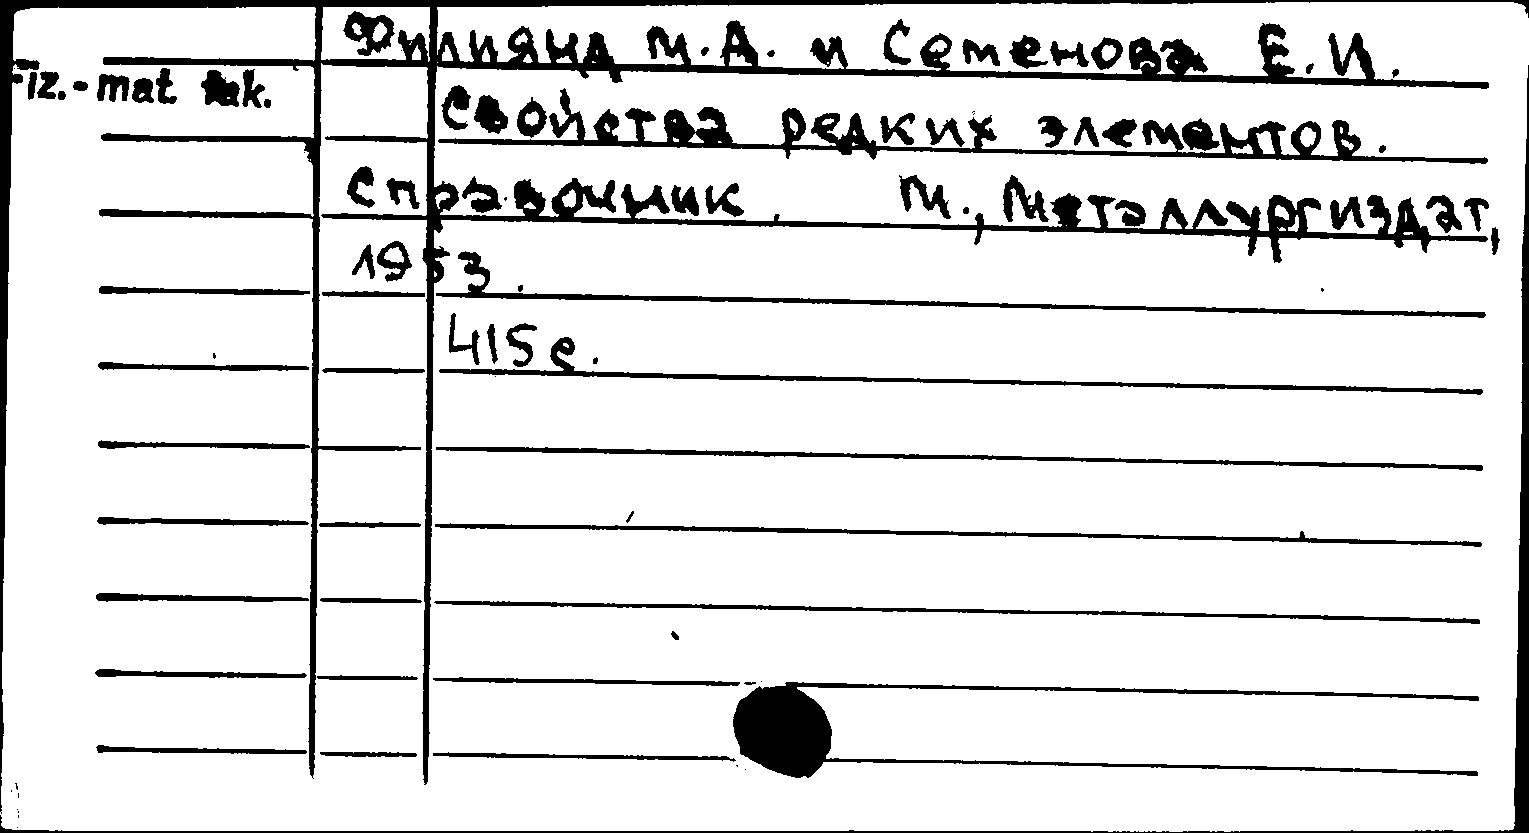 Филиянд М.А. и Семенова Е.И.
Fiz.-mat. fak.
Свойства редких элементов.
Справочник. М., Металлургиздат,
1953.
415 с.